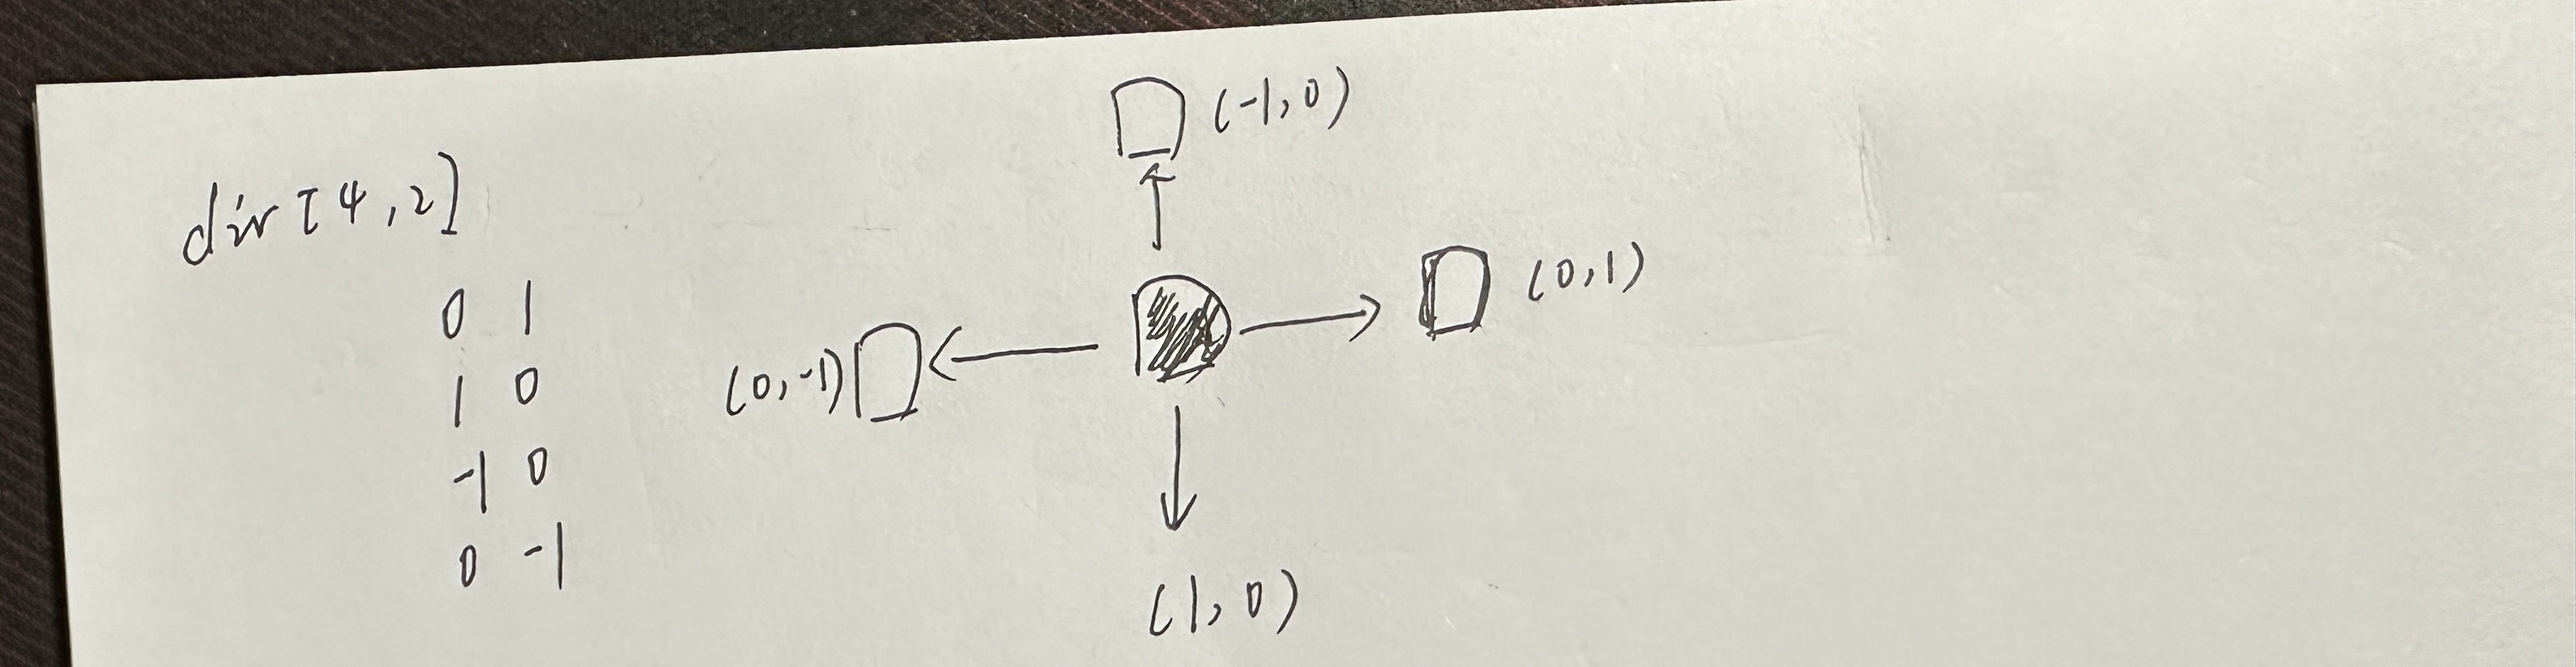 dir [4,2]
0 1
1 0
-1 0
0 -1
(-1,0)
(0,1)
(0,-1)
(1,0)